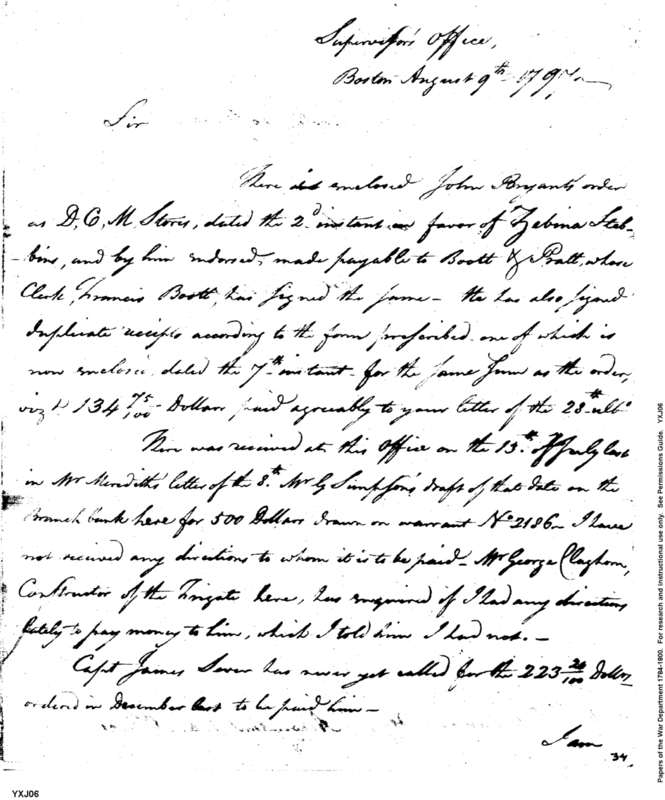 Supervisor's Office,
Boston August 9th 1797
Sir
There is enclosed John Bryant's order
as D, C, M Stores, dated the 2d instant in favor of Zebina Steb-
-bins, and by him endorsed, made payable to Boott & Pratt, whose
Clerk, Francis Boott, has signed the same - He has also signed
duplicate receipts according to the form prescribed one of which is
now enclosed dated the 7th instant - for the same sum as the order,
vizt 134 75/100 Dollars paid agreeably to your letter of the 28th ulto
There was received at this Office on the 13th of July last
in Mr Meredith's letter of the 8th Mr G Simpson's draft of that date on the
Branch bank here for 500 Dollars drawn on warrant No 2186 - I have
not received any directions to whom it is to be paid - Mr George Claghorn,
Constructor of the Frigate here, has enquired if I had any directions
lately to pay money to him, which I told him I had not. -
Capt James Sever has never yet called for the 223 24/100 Dollars
ordered in December last to be paid him -
I am
34
YXJ06
Papers of the War Department 1784-1800. For research and instructional use only. See Permissions Guide. YXJ06